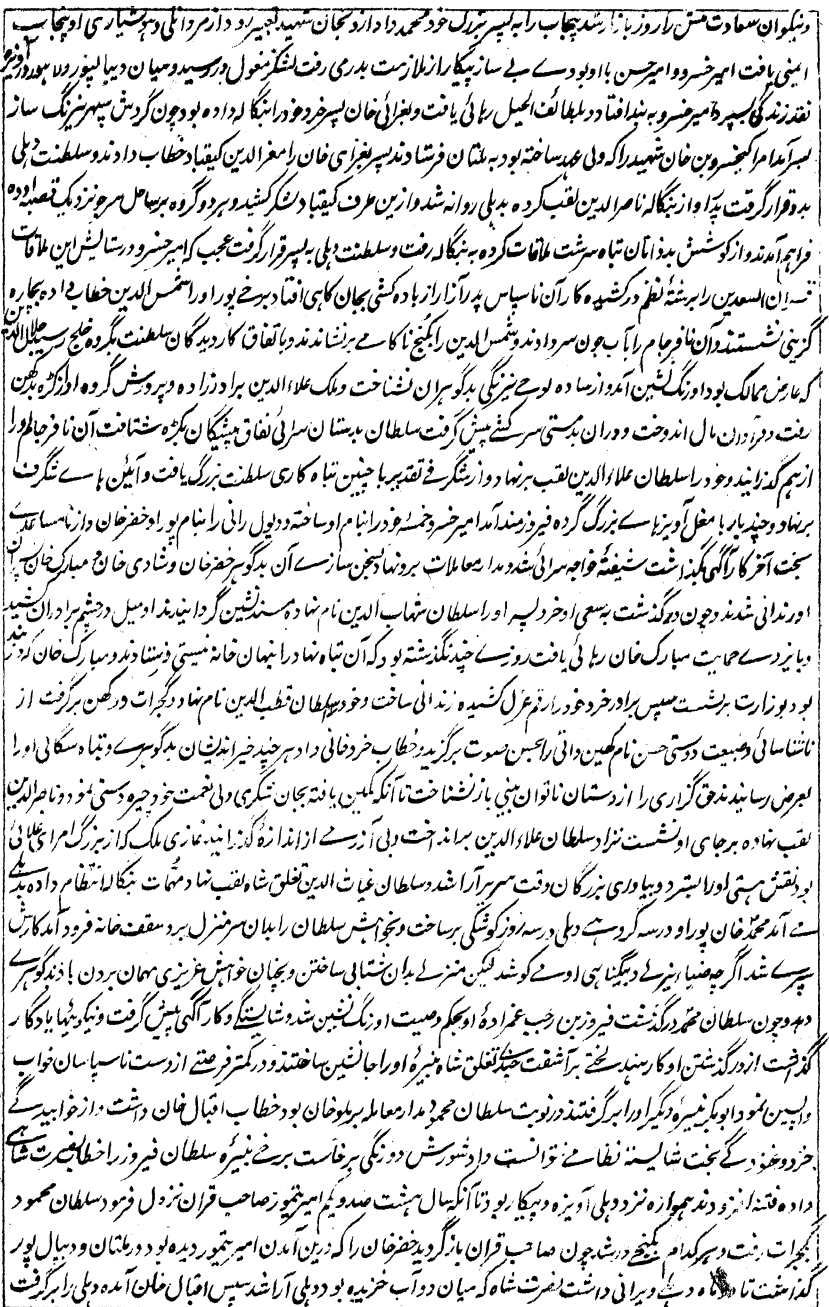 و نیکوان سعادت منش را روز بازار شد پنجاب را به پسر بزرگ خود محمد داد از و بخان شهید تعبیر رود از مردانگی و هوشیاری او پنجاب
ایمنی یافت امیر خسرو و امیر حسن با او بودے بے ساز پیکار از ملازمت پدر می رفت لشکر مغول در رسید و میان دیبالپور و لاهور در آویزه
نقد زندگی بسپرد امیر خسرو به بند افتاد و بلطائف الحیل رهائی یافت و بغرائی خان پسر خرد خود را بنگاله داده بود چون گردش سپهر نیرنگ ساز
بسر آمد امرا کیخسرو بن خان شهید را که ولی عهد ساخته بود به ملتان فرستادند پسر بغرای خان را معز الدین کیقباد خطاب دادند و سلطنت دهلی
بدو قرار گرفت پدر او از بنگاله ناصر الدین لقب کرده بدهلی روانه شد و ازین طرف کیقباد لشکر کشید و هر دو گروه بر ساحل سرجو نزدیک قصبه اوده
فراهم آمدند و از کوشش بدذاتان تباه سرشت ملاقات کرده به بنگاله رفت و سلطنت دهلی به پسر قرار گرفت عجب که امیر خسرو در ستایش این ملاقات
قران السعدین را برشتهٔ نظم در کشیده کار آن ناسپاس پدر آزار از باده کشی بجان کاهی افتاد برخے پور او را شمس الدین خطاب داده بچاره
گزینی نشستند و آن نافرجام را بآب جون سر دادند و شمس الدین را بکنج ناکامے برنشاندند و باتفاق کاردیدگان سلطنت بگروه خلج رسید جلال الدین
که عارض ممالک بود اورنگ نشین آمد و از ساده لوحے نیرنگی بدگوهران نشناخت و ملک علاء الدین برادرزاده و پرورش گروه او از کڑه بدکهن
رفت و فراوان مال اندوخت و دران بدمستی سرکشے پیش گرفت سلطان بدستان سرائی نفاق پیشگان بکڑه شتافت آن نافرجام او را
از هم گذرانید و خود را سلطان علاء الدین لقب بر نهاد و از شگرفے تقدیر با چنین تباه کاری سلطنت بزرگ یافت و آئین هاے شگرف
بر نهاد و چند بار با مغل آویزهاے بزرگ کرده فیروزمند آمد امیر خسرو خمسهٔ خود را بنام او ساخته و دیول رانی را بنام پور او خضر خان و از نامساعدے
بخت آخر کار آگهی بگذاشت شیفتهٔ خواجه سرائی شد و مدار معاملات برو نهاد بسخن سازے آن بدگوهر خضر خان و شادی خان و مبارک خان پسران
او زندانی شدند و چون در گذشت به سعی او خرد پسر او را سلطان شهاب الدین نام نهاده مسند نشین گردانیدند او میل در چشم برادران کشید
و بایزدے حمایت مبارک خان رهائی یافت روزے چند نگذشته بود که آن تباه نهاد را بنهان خانهٔ نیستی فرستادند و مبارک خان که در بند
بود بوزارت برنشست سپس برادر خرد خود را رقم عزل کشیده زندانی ساخت و خود سلطان قطب الدین نام نهاد گجرات و دکهن برگرفت از
ناشناسائی و طبیعت دوستی حسن نام کهین ذاتی را بحسن صوت برگزید و خطاب خرد خانی داد هر چند خیر اندیشان بدگوهرے و تباه سگالی او را
بعرض رسانیدند حق گزاری را از دستان ناتوان بینی باز نشناخت تا آنکه کمین یافته بجان شکری ولی نعمت خود چیره دستی نمود و ناصر الدین
لقب نهاده بر جای او نشست نژاد سلطان علاء الدین برانداخت و بی آزرمے از اندازه گذرانید غازی ملک که از بزرگ امرای علائی
بود نقش هستی او را بسترد و بیاوری بزرگان وقت سر برآرا شد و سلطان غیاث الدین تغلق شاه لقب نهاد مهمات بنگاله انتظام داده بدهلے
مے آمد محمد خان پور او در سه گروهے دهلی در سه روز کوشکی برساخت و بخواهش سلطان را بدان سرمنزل برد سقف خانه فرود آمد کارش
سپرے شد اگرچه ضیاء برنے در بیگناهی او مے کوشد لیکن منزلے بدان شتابی ساختن و بچنان خواهش عزیزی مهمان بردن باز بدگوهرے
دهد و چون سلطان محمد در گذشت فیروز بن رجب عمزادهٔ او بحکم وصیت اورنگ نشین شد و شایستگے و کار آگهی پیش گرفت و نیکوئیها یادگار
گذاشت از در گذشتن او کار هند لختے برآشفت چندے تغلق شاه نبیرهٔ او را جانشین ساختند و در کمتر فرصتے از دست ناسپاسان خواب
واپسین نمود ابوبکر نبیرهٔ دیگر او را برگرفتند در نوبت سلطان محمود مدار معامله بر ملو خان بود خطاب اقبال خان داشت و از خوابیدگے
خرد و غنودگے بخت شایسته نظامے نتوانست داد شورش دو رنگی برخاست برخے نبیرهٔ سلطان فیروز را خطاب نصرت شاهے
داده فتنه افزودند همواره نزد دهلی آویزه و پیکار بود تا آنکه سال هشت صد و یکم امیر تیمور صاحب قران نزول فرمود سلطان محمود
بگجرات رفت و هر کدام بکنجے در شد چون صاحب قران باز گردید خضر خان را که درین آمدن امیر تیمور دیده بود در ملتان و دیبال پور
گذاشت تا دو ماه دهلے ویرانی داشت نصرت شاه که میان دوآب خزیده بود دهلی آرا شد سپس اقبال خان آمده دهلی را برگرفت